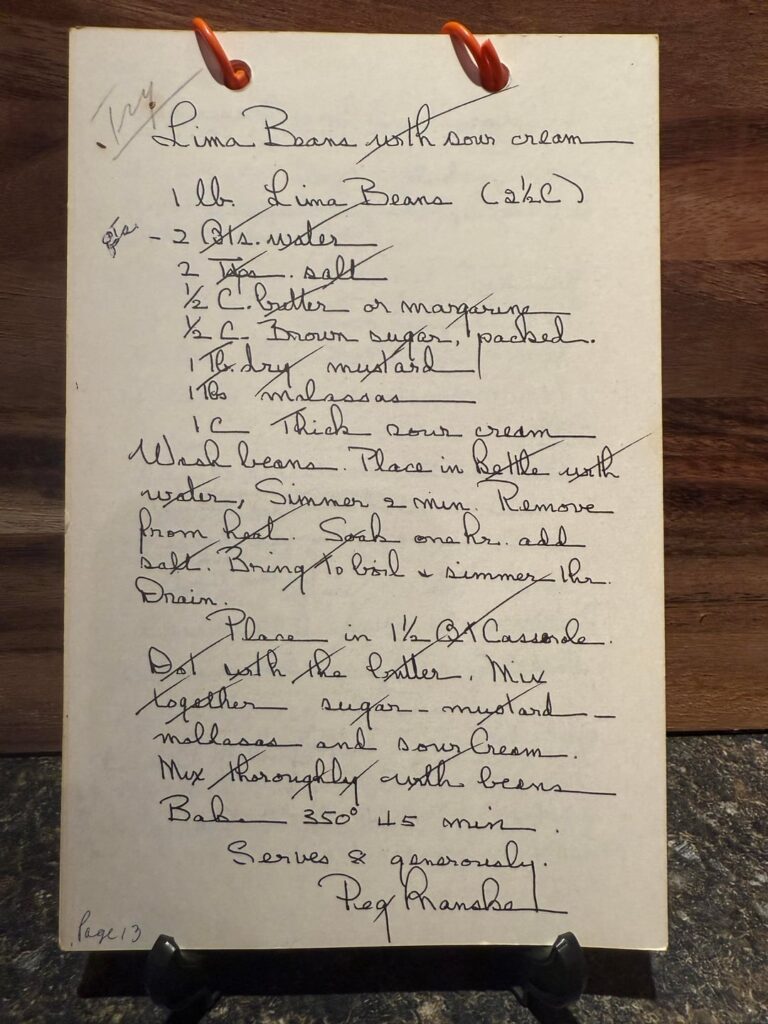 Try
Lima Beans with sour cream
1 lb. Lima Beans (2½C)
qts - 2 Qts. water
2 Tsps. salt
½ C. butter or margarine
½ C. Brown sugar, packed.
1 Tb. dry mustard
1 Tbs molassas
1 C Thick sour cream
Wash beans. Place in kettle with
water, Simmer 2 min. Remove
from heat. Soak one hr. add
salt. Bring to boil & simmer 1hr.
Drain.
Place in 1½ Qt Casserole.
Dot with the butter. Mix
together sugar - mustard -
mollasas and sour Cream.
Mix thoroughly with beans
Bake 350° 45 min.
Serves 8 generously.
Peg
Page 13